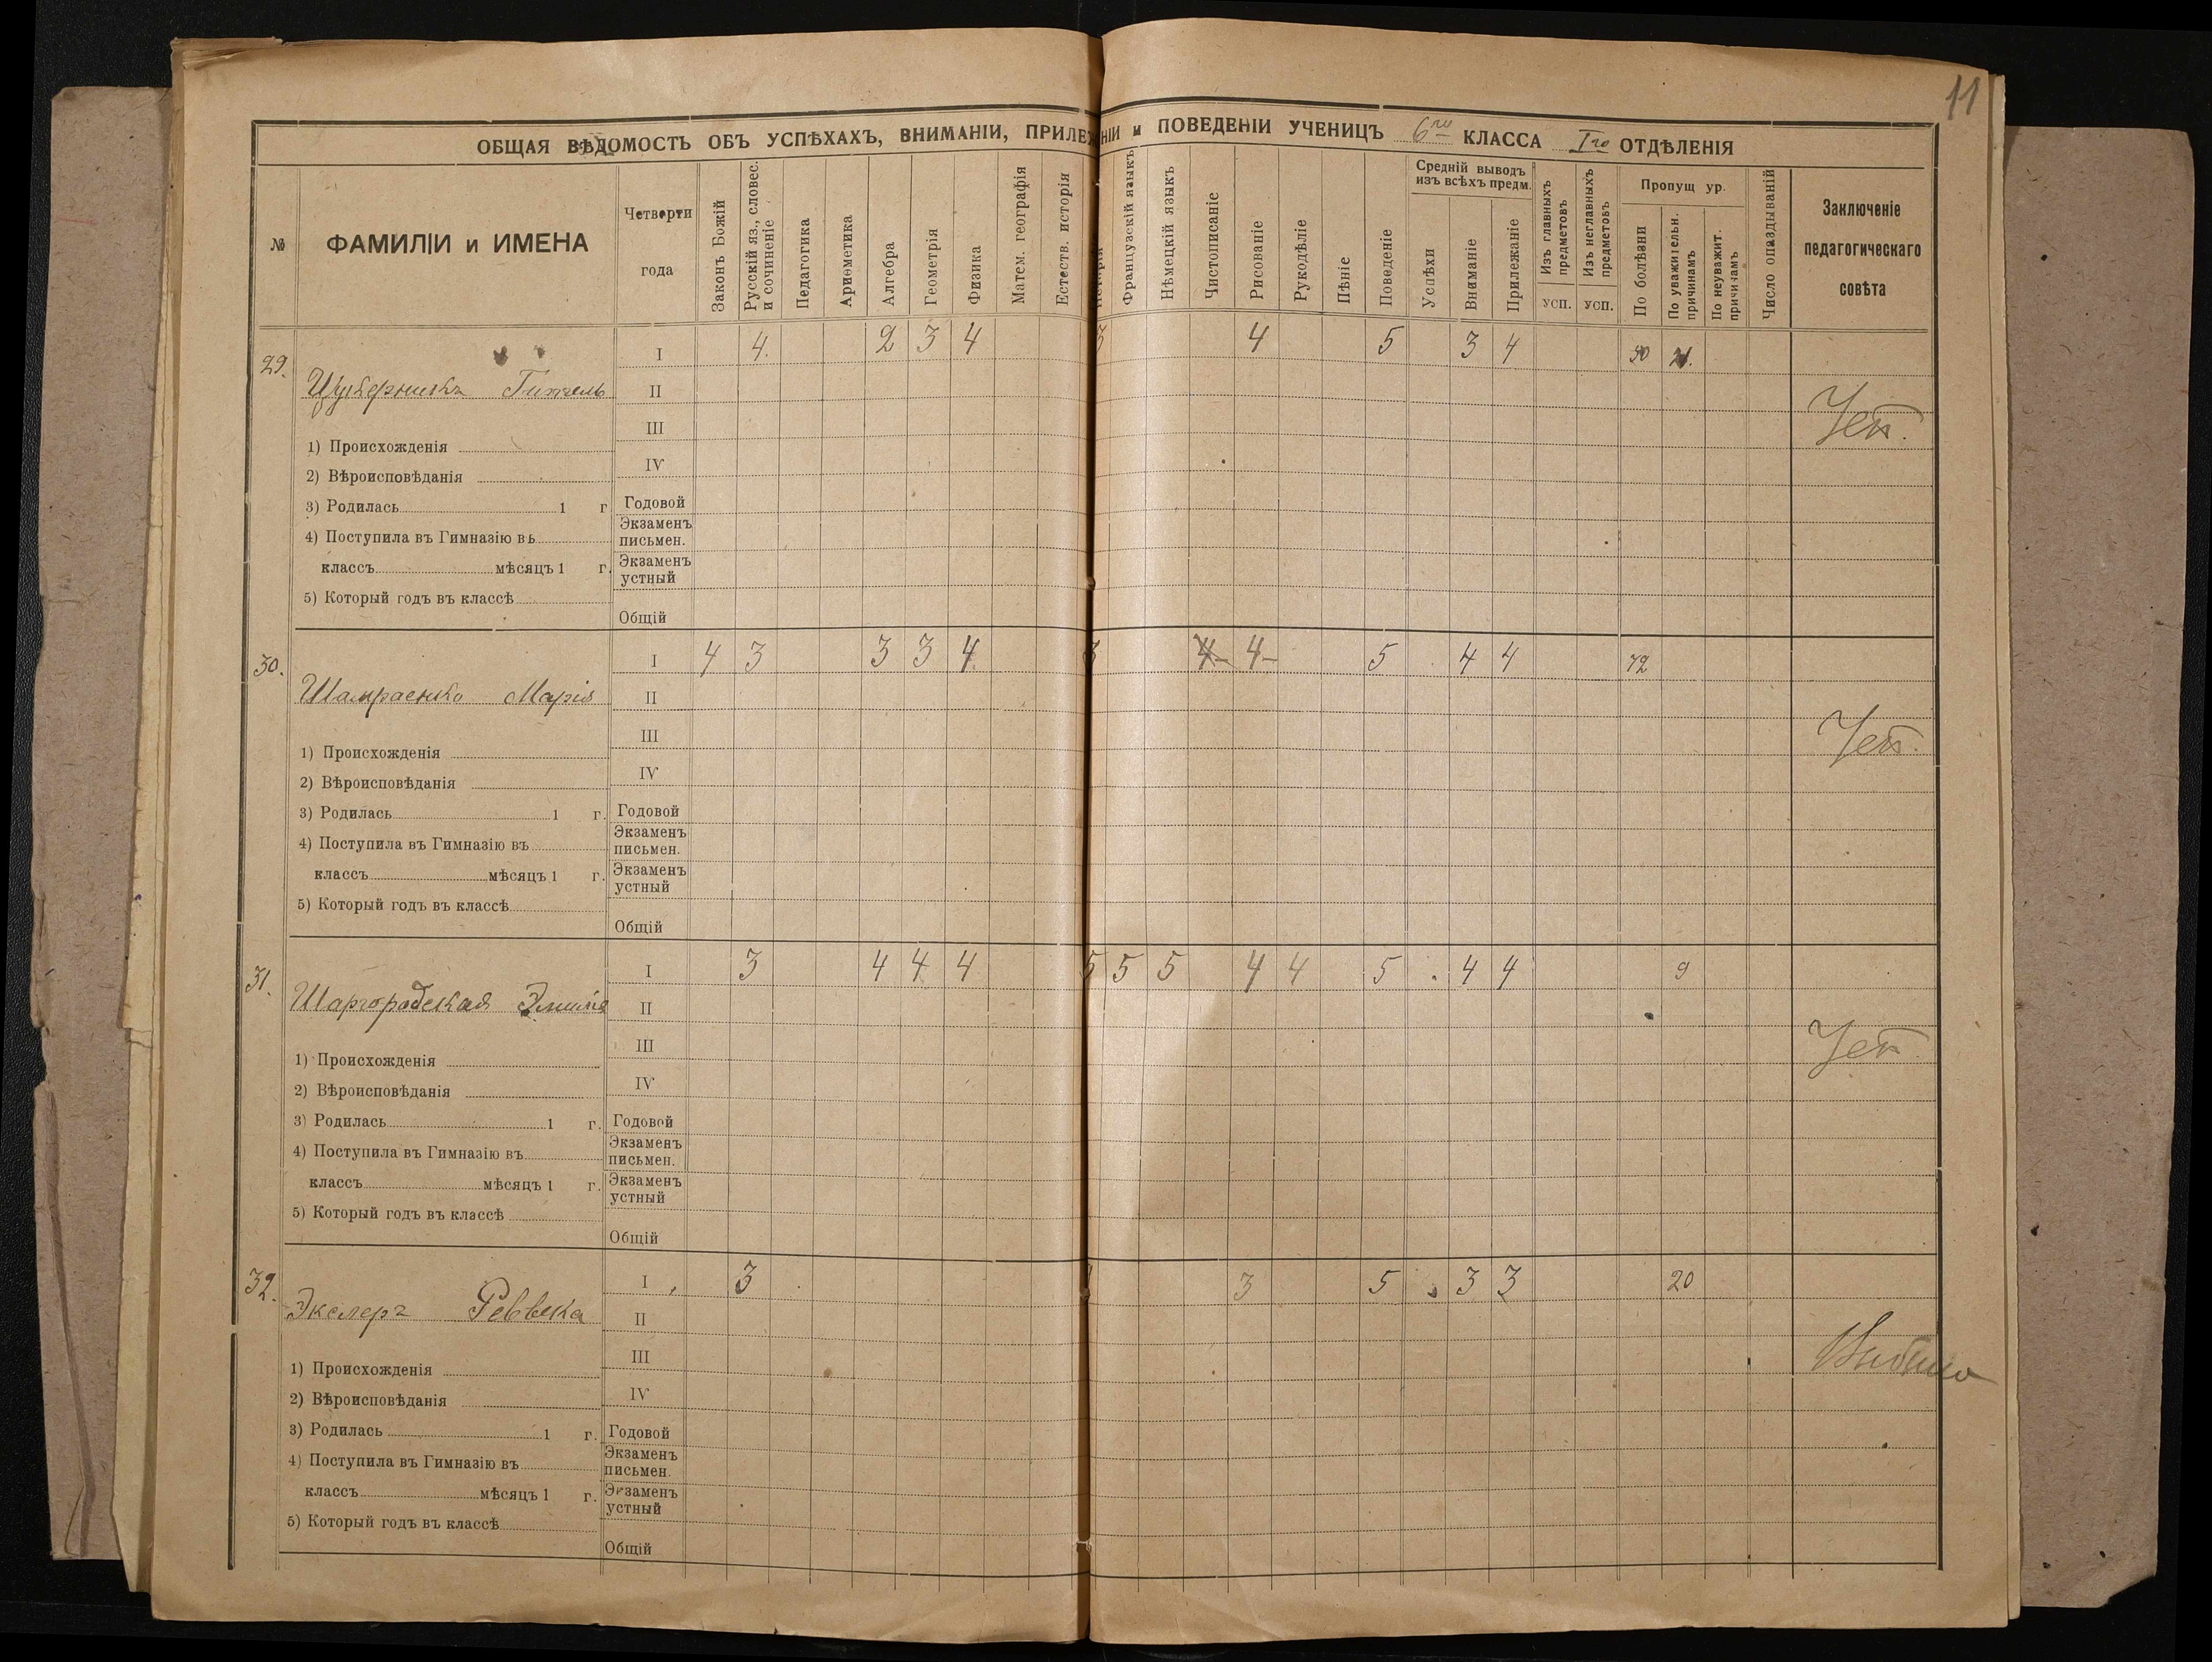 11
ОБЩАЯ ВѢДОМОСТЬ ОБЪ УСПѢХАХЪ, ВНИМАНІИ, ПРИЛЕЖ НІИ и ПОВЕДЕНІИ УЧЕНИЦЪ 6го КЛАССА Iго ОТДѢЛЕНІЯ
№ ФАМИЛІИ и ИМЕНА Четверти года Законъ Божій Русскій яз., словес. и сочиненіе Педагогика Ариѳметика Алгебра Геометрія Физика Матем. географія Естеств. исторія Французскій языкъ Нѣмецкій языкъ Чистописаніе Рисованіе Рукодѣліе Пѣніе Поведеніе Средній выводъ изъ всѣхъ предм. Успѣхи Вниманіе Прилежаніе Изъ главныхъ предметовъ УСП. Изъ неглавныхъ предметовъ УСП. Пропущ ур. По болѣзни По уважительн. причинамъ По неуважит. причинамъ Число опаздываній Заключеніе педагогическаго совѣта
29. I 4. 2 3 4 3 4 5 3 4 50
Цукерникъ Гитель II Усп.
III
1) Происхожденія
IV
2) Вѣроисповѣданія
3) Родилась 1 г Годовой
4) Поступила въ Гимназію въ Экзаменъ письмен.
классъ мѣсяцъ 1 г. Экзаменъ устный
5) Который годъ въ классѣ
Общій
30. I 4 3 3 3 4 3 4- 4- 5 4 4 72
Шамраенко Марія II Усп.
III
1) Происхожденія
IV
2) Вѣроисповѣданія
3) Родилась 1 г. Годовой
4) Поступила въ Гимназію въ Экзаменъ письмен.
классъ мѣсяцъ 1 г. Экзаменъ устный
5) Который годъ въ классѣ
Общій
31. I 3 4 4 4 5 5 5 4 4 5 4 4 9
Шаргородская Эмилія II Усп
III
1) Происхожденія
IV
2) Вѣроисповѣданія
3) Родилась 1 г. Годовой
4) Поступила въ Гимназію въ Экзаменъ письмен.
классъ мѣсяцъ 1 г. Экзаменъ устный
5) Который годъ въ классѣ
Общій
32. I 3 3 5 3 3 20
Экслеръ Реввека II Выбыла
III
1) Происхожденія
IV
2) Вѣроисповѣданія
3) Родилась 1 г. Годовой
4) Поступила въ Гимназію въ Экзаменъ письмен.
классъ мѣсяцъ 1 г. Экзаменъ устный
5) Который годъ въ классѣ
Общій